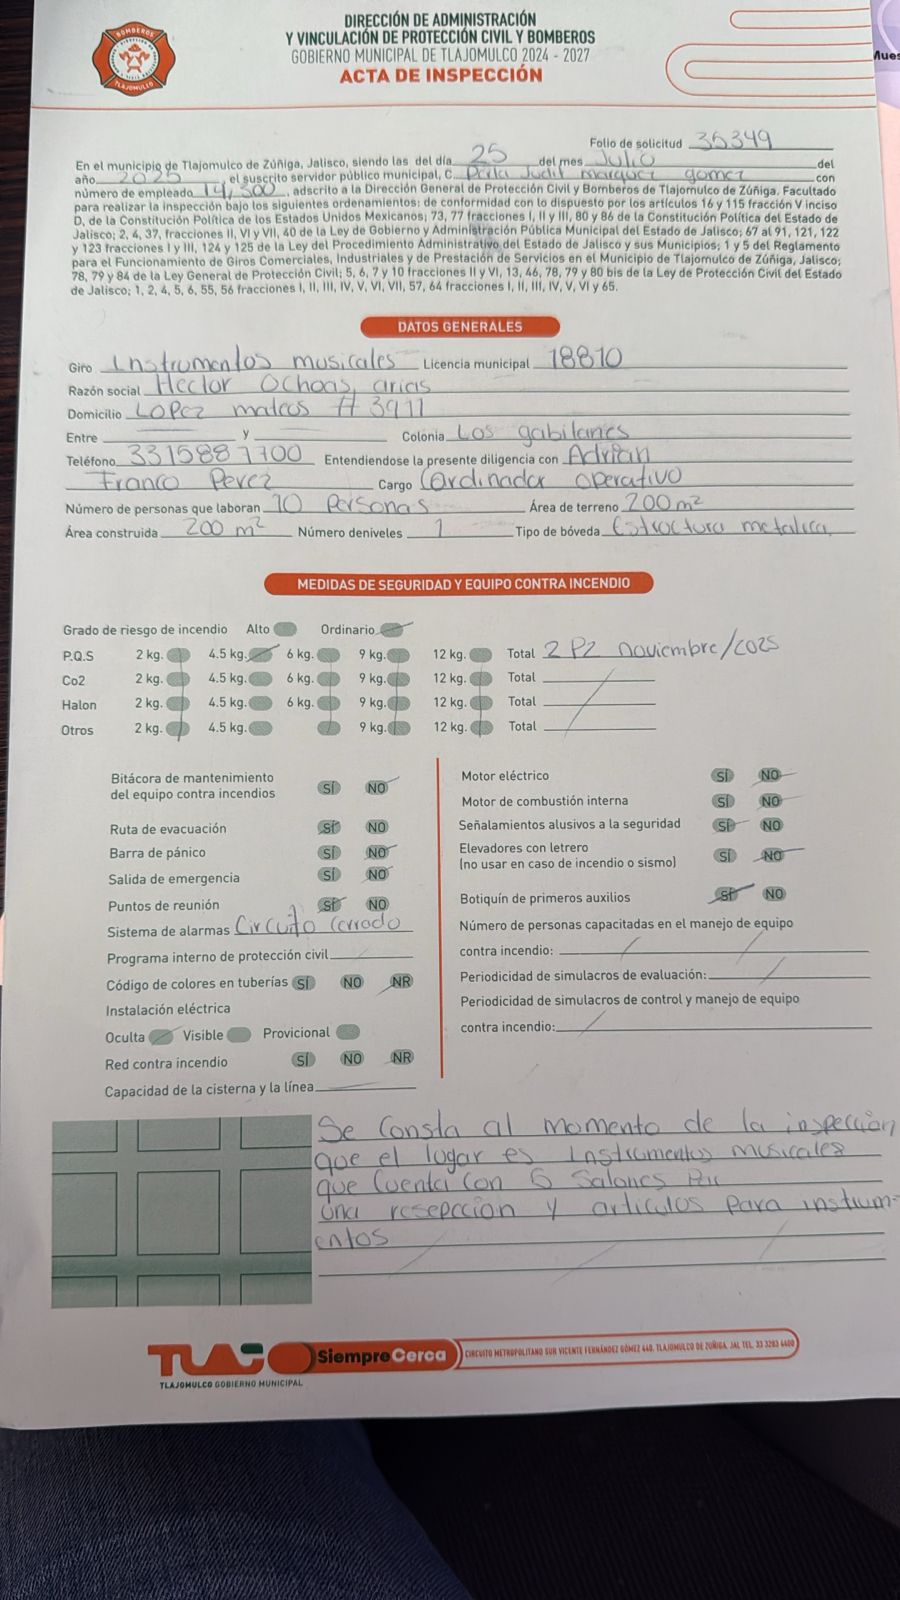 BOMBEROS
TLAJOMULCO
DIRECCIÓN DE ADMINISTRACIÓN
Y VINCULACIÓN DE PROTECCIÓN CIVIL Y BOMBEROS
GOBIERNO MUNICIPAL DE TLAJOMULCO 2024 - 2027
ACTA DE INSPECCIÓN
Mues
Folio de solicitud 35349
En el municipio de Tlajomulco de Zúñiga, Jalisco, siendo las del día 25 del mes Julio del
año 2025, el suscrito servidor público municipal, C. Perla Judit marquez gomez con
número de empleado 14,300, adscrito a la Dirección General de Protección Civil y Bomberos de Tlajomulco de Zúñiga. Facultado
para realizar la inspección bajo los siguientes ordenamientos: de conformidad con lo dispuesto por los artículos 16 y 115 fracción V inciso
D, de la Constitución Política de los Estados Unidos Mexicanos; 73, 77 fracciones I, II y III, 80 y 86 de la Constitución Política del Estado de
Jalisco; 2, 4, 37, fracciones II, VI y VII, 40 de la Ley de Gobierno y Administración Pública Municipal del Estado de Jalisco; 67 al 91, 121, 122
y 123 fracciones I y III, 124 y 125 de la Ley del Procedimiento Administrativo del Estado de Jalisco y sus Municipios; 1 y 5 del Reglamento
para el Funcionamiento de Giros Comerciales, Industriales y de Prestación de Servicios en el Municipio de Tlajomulco de Zúñiga, Jalisco;
78, 79 y 84 de la Ley General de Protección Civil; 5, 6, 7 y 10 fracciones II y VI, 13, 46, 78, 79 y 80 bis de la Ley de Protección Civil del Estado
de Jalisco; 1, 2, 4, 5, 6, 55, 56 fracciones I, II, III, IV, V, VI, VII, 57, 64 fracciones I, II, III, IV, V, VI y 65.
DATOS GENERALES
Giro Instrumentos musicales Licencia municipal 18810
Razón social Hector Ochoas arias
Domicilio Lopez mateos # 3911
Entre y Colonia Los gabilanes
Teléfono 3315887700 Entendiendose la presente diligencia con Adrian
Franco Perez Cargo Cordinador operativo
Número de personas que laboran 10 Personas Área de terreno 200 m²
Área construida 200 m² Número deniveles 1 Tipo de bóveda Estructura metalica
MEDIDAS DE SEGURIDAD Y EQUIPO CONTRA INCENDIO
Grado de riesgo de incendio Alto Ordinario
P.Q.S 2 kg. 4.5 kg. 6 kg. 9 kg. 12 kg. Total 2 Pz noviembre/2025
Co2 2 kg. 4.5 kg. 6 kg. 9 kg. 12 kg. Total
Halon 2 kg. 4.5 kg. 6 kg. 9 kg. 12 kg. Total
Otros 2 kg. 4.5 kg. 9 kg. 12 kg. Total
Bitácora de mantenimiento
del equipo contra incendios SÍ NO
Ruta de evacuación SÍ NO
Barra de pánico SÍ NO
Salida de emergencia SÍ NO
Puntos de reunión SÍ NO
Sistema de alarmas Circuito cerrado
Programa interno de protección civil
Código de colores en tuberías SÍ NO NR
Instalación eléctrica
Oculta Visible Provicional
Red contra incendio SÍ NO NR
Capacidad de la cisterna y la línea
Motor eléctrico SÍ NO
Motor de combustión interna SÍ NO
Señalamientos alusivos a la seguridad SÍ NO
Elevadores con letrero
(no usar en caso de incendio o sismo) SÍ NO
Botiquín de primeros auxilios SÍ NO
Número de personas capacitadas en el manejo de equipo
contra incendio:
Periodicidad de simulacros de evaluación:
Periodicidad de simulacros de control y manejo de equipo
contra incendio:
Se Consta al momento de la inspección
que el lugar es Instrumentos musicales
que Cuenta Con 5 Salones
una resepcción y articulos para instrum-
entos
TLAJO SiempreCerca CIRCUITO METROPOLITANO SUR VICENTE FERNÁNDEZ GÓMEZ 640. TLAJOMULCO DE ZÚÑIGA. JAL TEL. 33 3283 4400
TLAJOMULCO GOBIERNO MUNICIPAL